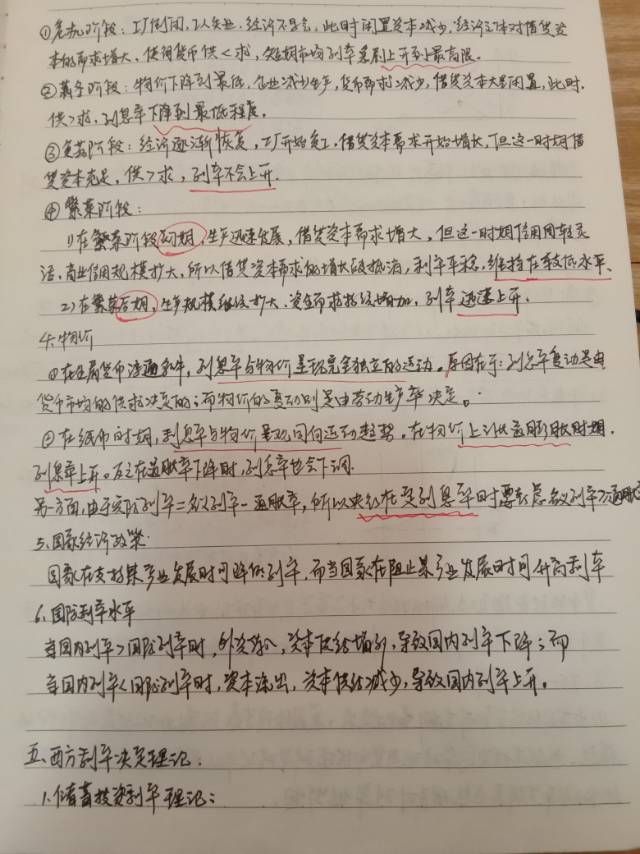 ①危机阶段：工厂倒闭，工人失业，经济不景气，此时闲置资本减少，经济主体对借贷资
本的需求增大，使得货币供<求，短期市场利率急剧上升至最高限。
②萧条阶段：物价下降到最低，企业减少生产，货币需求减少，借贷资本大量闲置，此时，
供>求，利息率下降到最低程度。
③复苏阶段：经济逐渐恢复，工厂开始复工，借贷资本需求开始增长，但这一时期借
贷资本充足，供>求，利率不会上升。
④繁荣阶段：
1)在繁荣阶段初期，生产迅速发展，借贷资本需求增大，但这一时期信用周转灵
活，商业信用规模扩大，所以借贷资本需求的增长被抵消，利率平稳，维持在较低水平、
2)在繁荣后期，生产规模继续扩大，资金需求持续增加，利率迅速上升，
4、物价
①在金属货币流通条件，利息率与物价呈现完全独立的运动。原因在于：利息率变动是由
货币市场的供求决定的；而物价的变动则是由劳动生产率决定。
②在纸币时期，利息率与物价呈现同向运动趋势。在物价上涨通膨胀时期，
利息率上升。反之在通胀率下降时，利息率也会下调.
另一方面，由于实际利率=名义利率-通胀率，所以央行在定利息率时要考虑名义利率>通胀
5、国家经济政策.
国家在支持某产业发展时可降低利率，而当国家在阻止某产业发展时可升高利率
6、国际利率水平
当国内利率>国际利率时，外资流入，资本供给增加，导致国内利率下降；而
当国内利率<国际利率时，资本流出，资本供给减少，导致国内利率上升。
五、西方利率决定理论.
1、储蓄投资利率理论：